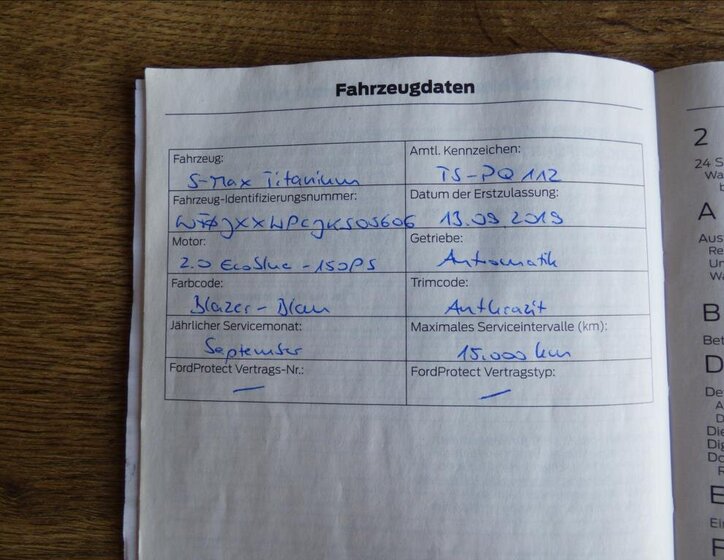 Fahrzeugdaten
Fahrzeug:
S-Max Titanium
Amtl. Kennzeichen:
TS-PQ 112
Fahrzeug-Identifizierungsnummer:
Datum der Erstzulassung:
13.09.2019
Motor:
2.0 EcoBlue - 150PS
Getriebe:
Automatik
Farbcode:
Blazer-Blau
Trimcode:
Anthrazit
Jährlicher Servicemonat:
September
Maximales Serviceintervalle (km):
15.000 km
FordProtect Vertrags-Nr.:
—
FordProtect Vertragstyp:
—
2
24 S
Wa
b
A
Aus
Re
Un
Wa
B
Bet
D
De
A
D
Die
Dig
Do
R
E
Ein